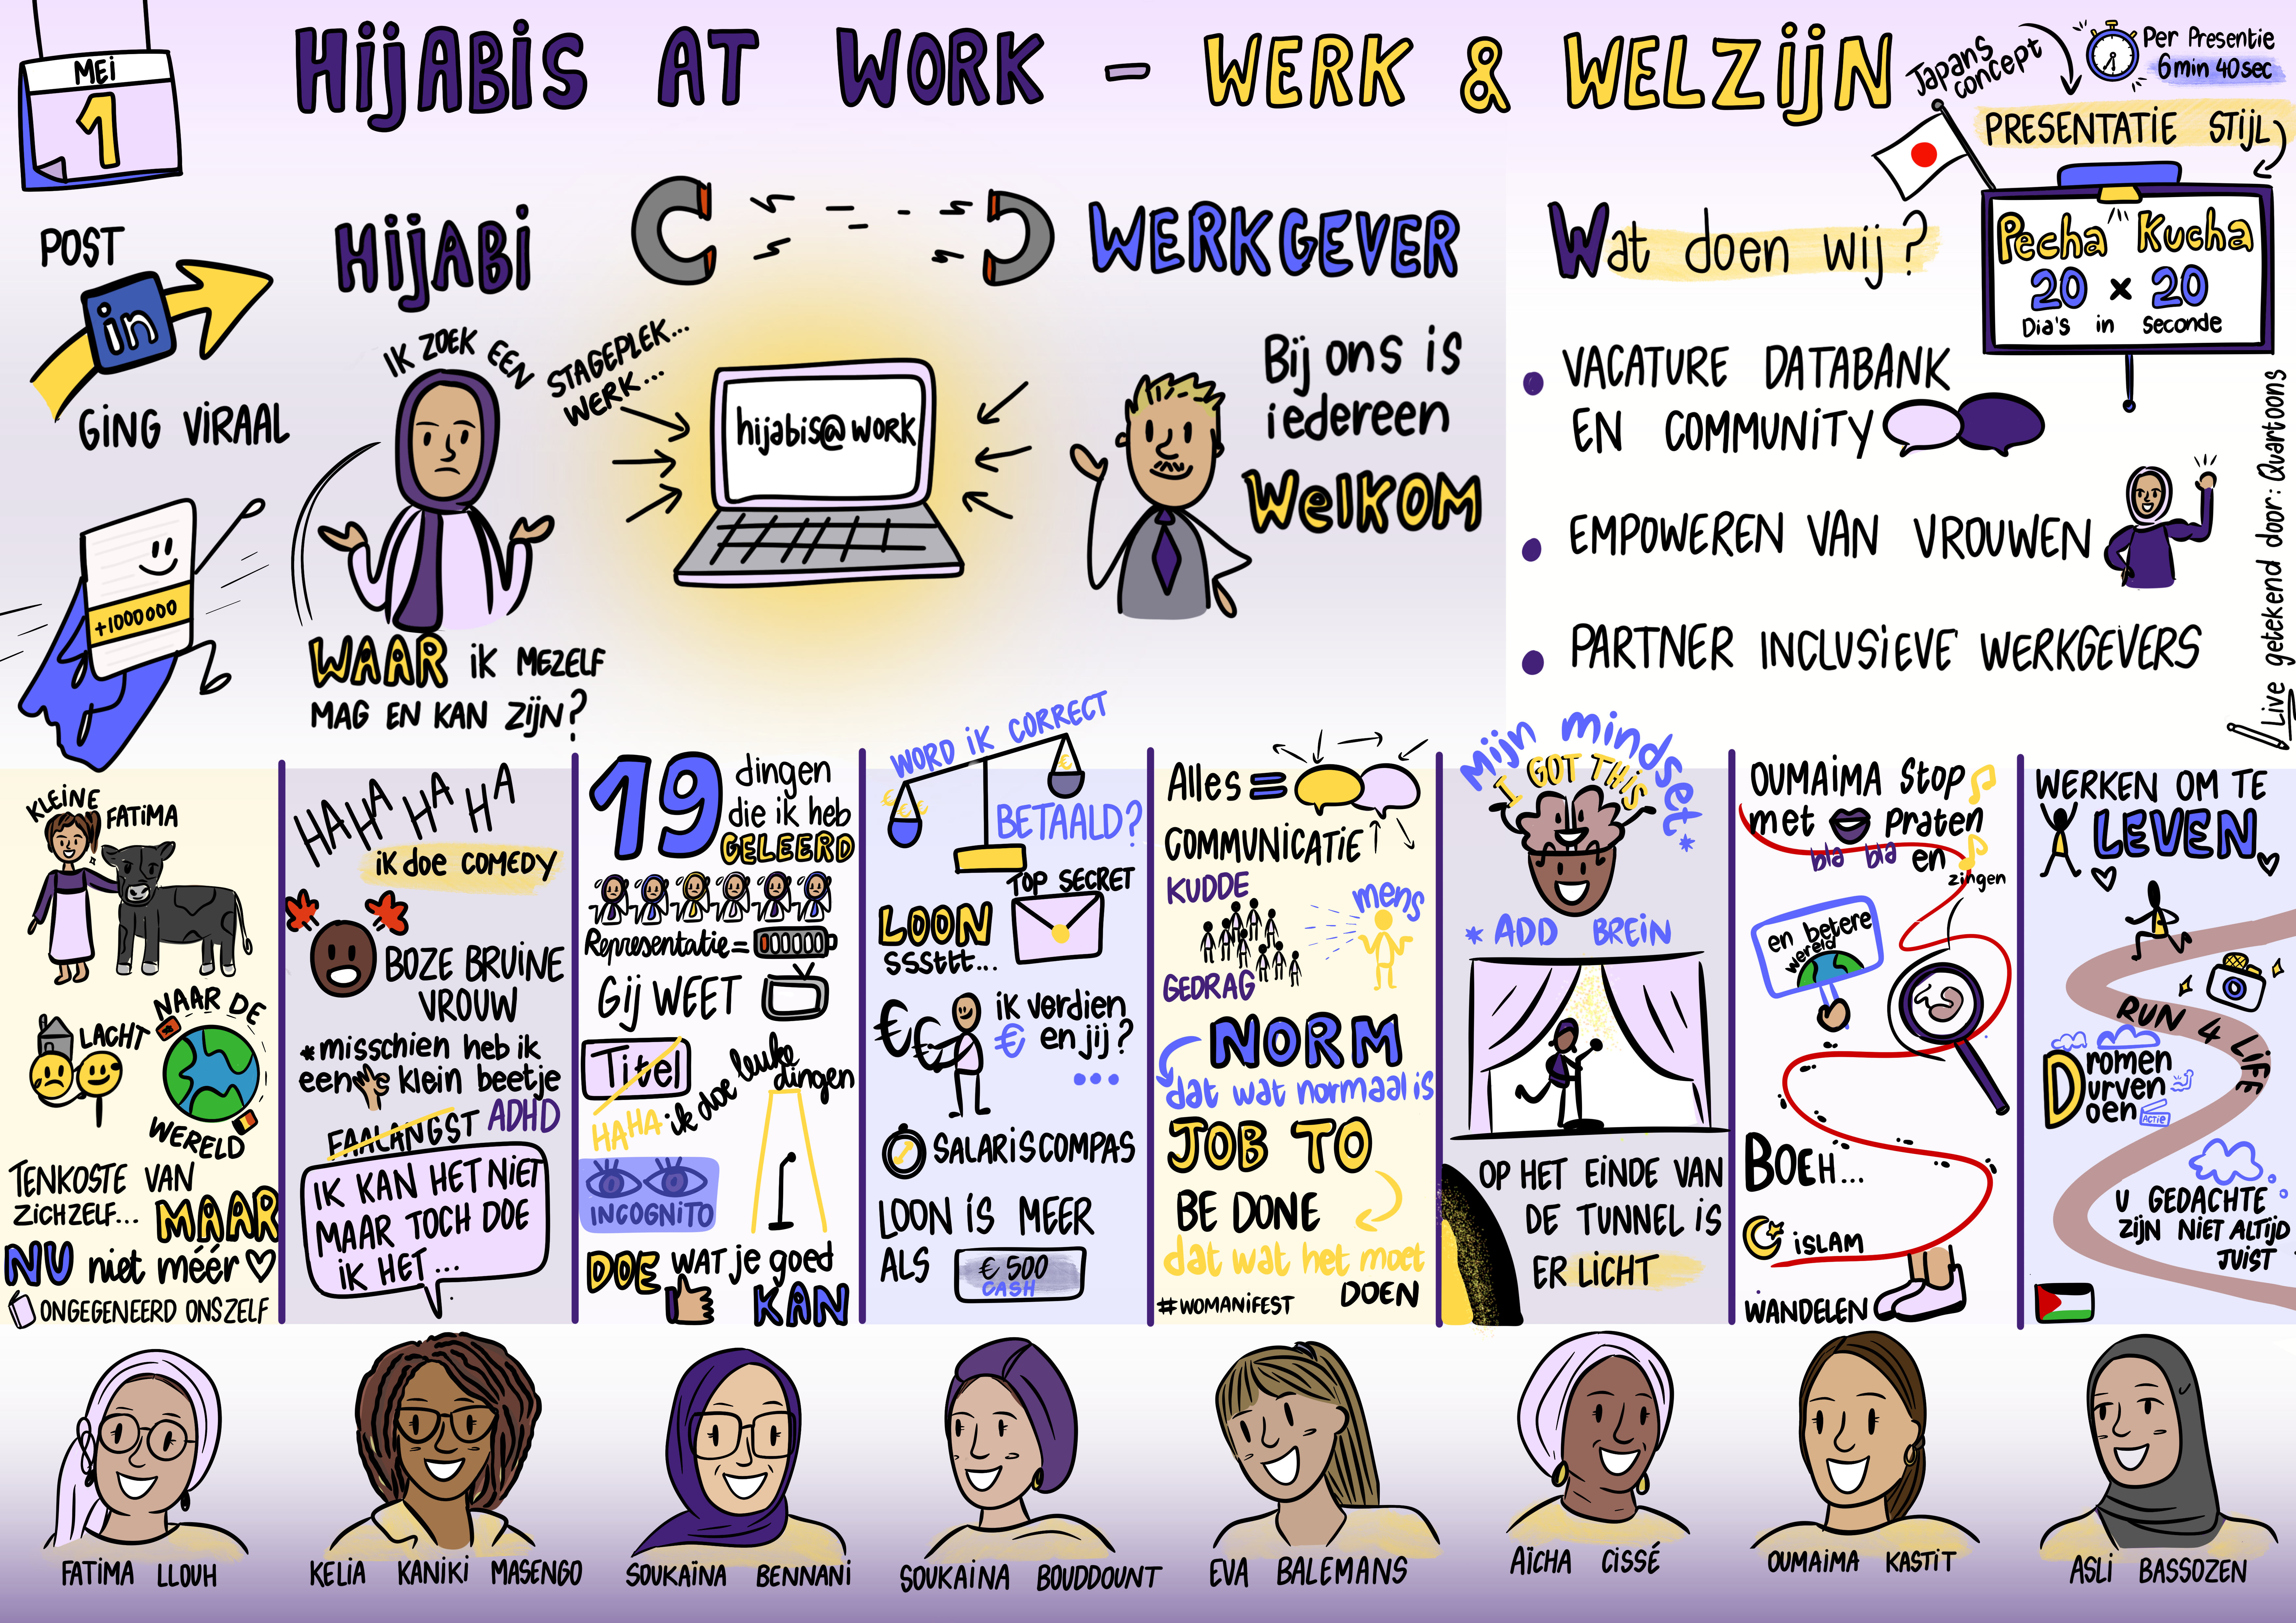 MEI
1
HIJABIS AT WORK - WERK & WELZIJN
Japans concept
Per Presentie
6min 40sec
PRESENTATIE STIJL
Pecha Kucha
20 x 20
Dia's in seconde
POST
in
GING VIRAAL
+1000000
HIJABI
IK ZOEK EEN
STAGEPLEK...
WERK...
WAAR IK MEZELF
MAG EN KAN ZIJN?
hijabis@work
WERKGEVER
Bij ons is
iedereen
WELKOM
Wat doen wij?
• VACATURE DATABANK
EN COMMUNITY
• EMPOWEREN VAN VROUWEN
• PARTNER INCLUSIEVE WERKGEVERS
Live getekend door: Quartoons
KLEINE
FATIMA
LACHT
NAAR DE
WERELD
TENKOSTE VAN
ZICHZELF... MAAR
NU niet méér
ONGEGENEERD ONSZELF
HAHA HA HA
ik doe COMEDY
BOZE BRUINE
VROUW
*misschien heb ik
een klein beetje
FAALANGST ADHD
IK KAN HET NIET
MAAR TOCH DOE
IK HET...
19 dingen
die ik heb
GELEERD
Representatie=
Gij WEET
Titel
HAHA ik doe leuke
dingen
INCOGNITO
DOE WAT je goed
KAN
WORD IK CORRECT
€€€
€
BETAALD?
TOP SECRET
LOON
SSSttt...
€€
ik verdien
€ en jij?
...
SALARISCOMPAS
LOON IS MEER
ALS € 500
CASH
Alles =
COMMUNICATIE
KUDDE
mens
GEDRAG
NORM
dat wat normaal is
JOB TO
BE DONE
dat wat het moet
DOEN
#WOMANIFEST
Mijn mindset*
I GOT THIS
* ADD BREIN
OP HET EINDE VAN
DE TUNNEL IS
ER LICHT
OUMAIMA Stop
met praten
bla bla en
zingen
en betere
wereld
BOEH...
ISLAM
WANDELEN
WERKEN OM TE
LEVEN
RUN 4 LIFE
Dromen
Durven
Doen
ACTIE
U GEDACHTE
ZIJN NIET ALTIJD
JUIST
FATIMA LLOUH
KELIA KANIKI MASENGO
SOUKAÏNA BENNANI
SOUKAINA BOUDDOUNT
EVA BALEMANS
AÏCHA CISSÉ
OUMAIMA KASTIT
ASLI BASSOZEN